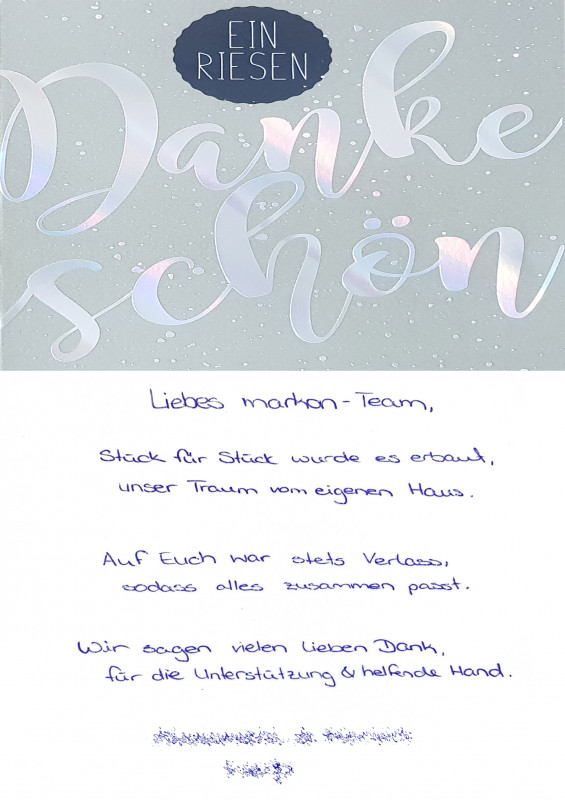 EIN
RIESEN
Danke
schön
Liebes markon-Team,
Stück für Stück wurde es erbaut,
unser Traum vom eigenen Haus.
Auf Euch war stets Verlass,
sodass alles zusammen passt.
Wir sagen vielen lieben Dank,
für die Unterstützung & helfende Hand.